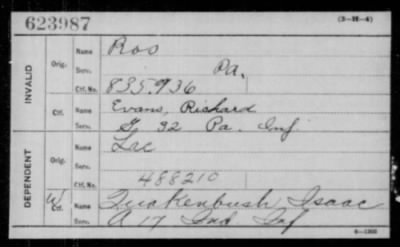 623987 (3—H—4)
INVALID
Orig. Name Ros
Serv. Pa.
Ctf. No. 835.936
Ctf. Name Evans, Richard
Serv. G 32 Pa. Inf
DEPENDENT
Orig. Name Lac
Serv.
Ctf. No. 488210
W Ctf. Name Quakenbush Isaac
Serv. A 17 Ind Inf
6—1300